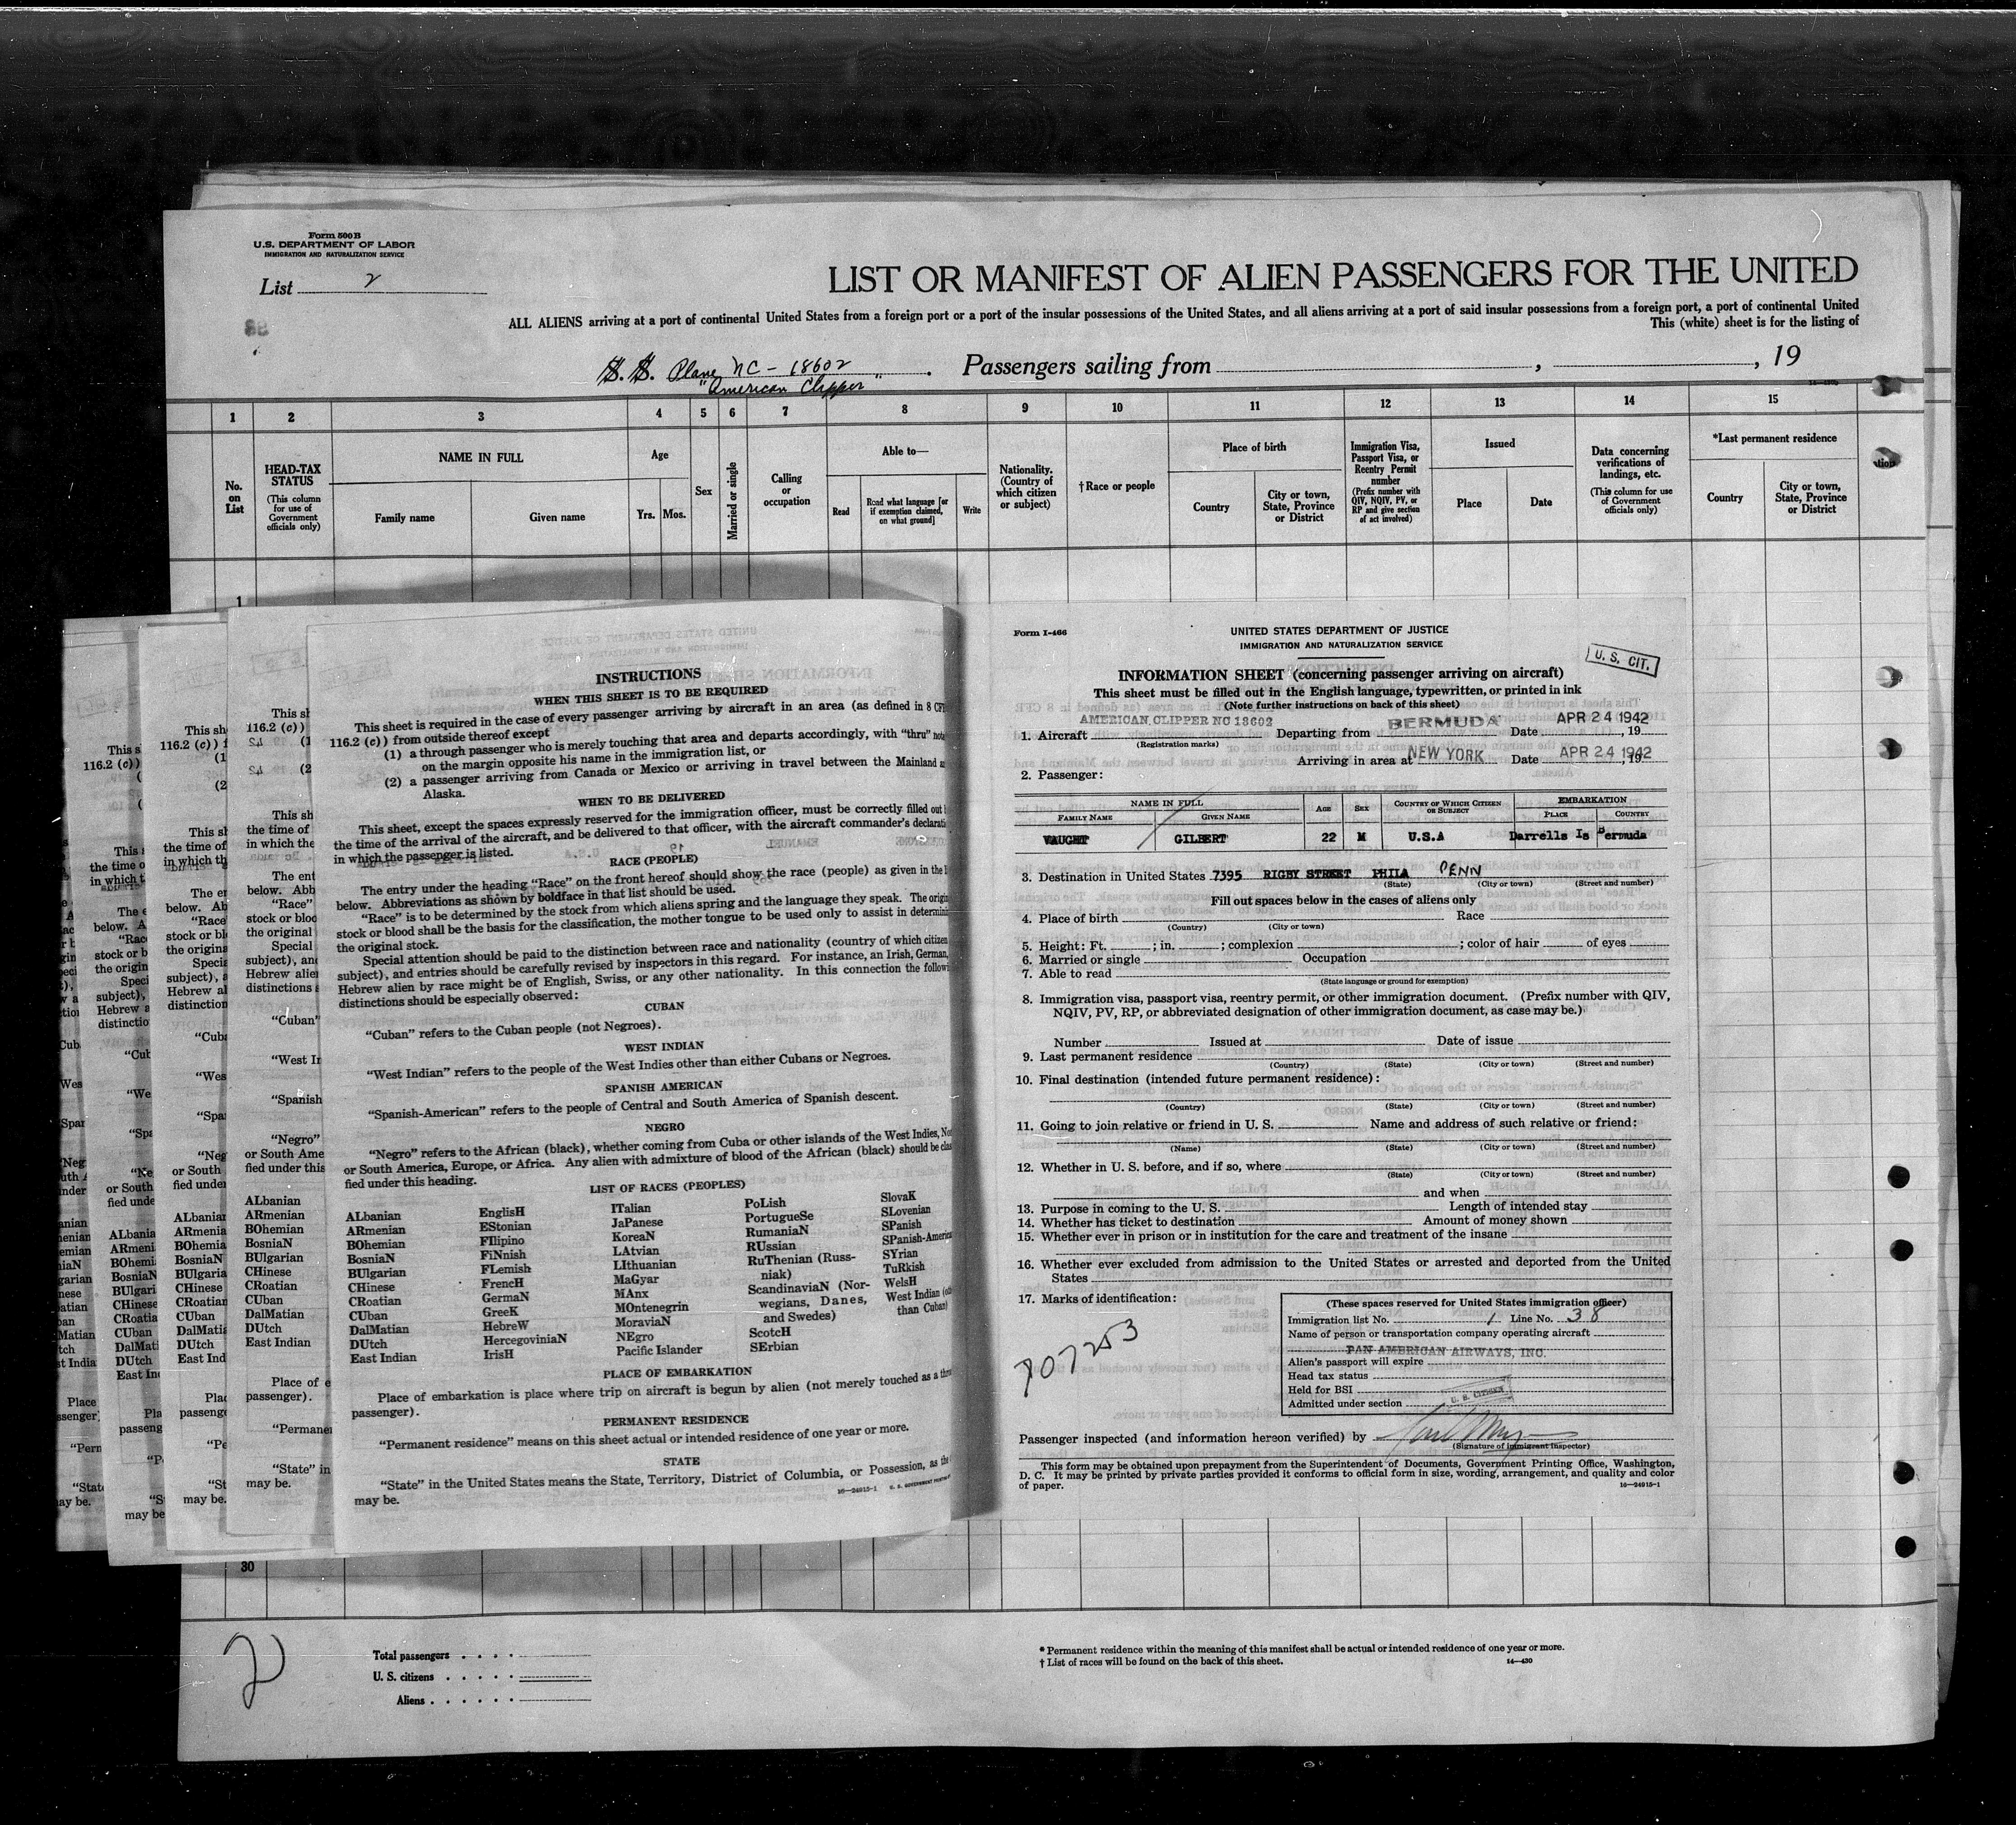 Form 500 B
U.S. DEPARTMENT OF LABOR
IMMIGRATION AND NATURALIZATION SERVICE
List 2
LIST OR MANIFEST OF ALIEN PASSENGERS FOR THE UNITED
ALL ALIENS arriving at a port of continental United States from a foreign port or a port of the insular possessions of the United States, and all aliens arriving at a port of said insular possessions from a foreign port, a port of continental United
This (white) sheet is for the listing of
S. S. Plane NC - 18602 . Passengers sailing from , , 19
"American Clipper"
1 2 3 4 5 6 7 8 9 10 11 12 13 14 15
No. on List
HEAD-TAX STATUS
(This column for use of Government officials only)
NAME IN FULL
Family name Given name
Age
Yrs. Mos.
Sex
Married or single
Calling or occupation
Able to—
Read
Read what language [or if exemption claimed, on what ground]
Write
Nationality. (Country of which citizen or subject)
†Race or people
Place of birth
Country
City or town, State, Province or District
Immigration Visa, Passport Visa, or Reentry Permit number
(Prefix number with QIV, NQIV, PV, or RP and give section of act involved)
Issued
Place Date
Data concerning verifications of landings, etc.
(This column for use of Government officials only)
*Last permanent residence
Country
City or town, State, Province or District
1
INSTRUCTIONS
WHEN THIS SHEET IS TO BE REQUIRED
This sheet is required in the case of every passenger arriving by aircraft in an area (as defined in 8 CFR
116.2 (c)) from outside thereof except
(1) a through passenger who is merely touching that area and departs accordingly, with "thru"
on the margin opposite his name in the immigration list, or
(2) a passenger arriving from Canada or Mexico or arriving in travel between the Mainland
Alaska.
WHEN TO BE DELIVERED
This sheet, except the spaces expressly reserved for the immigration officer, must be correctly filled out
the time of the arrival of the aircraft, and be delivered to that officer, with the aircraft commander's
in which the passenger is listed.
RACE (PEOPLE)
The entry under the heading "Race" on the front hereof should show the race (people) as given in the
below. Abbreviations as shown by boldface in that list should be used.
"Race" is to be determined by the stock from which aliens spring and the language they speak. The
stock or blood shall be the basis for the classification, the mother tongue to be used only to assist in
the original stock.
Special attention should be paid to the distinction between race and nationality (country of which citizen
subject), and entries should be carefully revised by inspectors in this regard. For instance, an Irish, German,
Hebrew alien by race might be of English, Swiss, or any other nationality. In this connection the
distinctions should be especially observed:
CUBAN
"Cuban" refers to the Cuban people (not Negroes).
WEST INDIAN
"West Indian" refers to the people of the West Indies other than either Cubans or Negroes.
SPANISH AMERICAN
"Spanish-American" refers to the people of Central and South America of Spanish descent.
NEGRO
"Negro" refers to the African (black), whether coming from Cuba or other islands of the West Indies,
or South America, Europe, or Africa. Any alien with admixture of blood of the African (black) should be
fied under this heading.
LIST OF RACES (PEOPLES)
ALbanian
ARmenian
BOhemian
BosniaN
BUlgarian
CHinese
CRoatian
CUban
DalMatian
DUtch
East Indian
EnglisH
EStonian
FIlipino
FiNnish
FLemish
FrencH
GermaN
GreeK
HebreW
HercegoviniaN
IrisH
ITalian
JaPanese
KoreaN
LAtvian
LIthuanian
MaGyar
MAnx
MOntenegrin
MoraviaN
NEgro
Pacific Islander
PoLish
PortugueSe
RumaniaN
RUssian
RuThenian (Russ-
niak)
ScandinaviaN (Nor-
wegians, Danes,
and Swedes)
ScotcH
SErbian
SlovaK
SLovenian
SPanish
SPanish-American
SYrian
TuRkish
WelsH
West Indian
than Cuban)
PLACE OF EMBARKATION
Place of embarkation is place where trip on aircraft is begun by alien (not merely touched as a
passenger).
PERMANENT RESIDENCE
"Permanent residence" means on this sheet actual or intended residence of one year or more.
STATE
"State" in the United States means the State, Territory, District of Columbia, or Possession, as
may be.
16—24915-1
Form I-466
UNITED STATES DEPARTMENT OF JUSTICE
IMMIGRATION AND NATURALIZATION SERVICE
U. S. CIT.
INFORMATION SHEET (concerning passenger arriving on aircraft)
This sheet must be filled out in the English language, typewritten, or printed in ink
(Note further instructions on back of this sheet)
1. Aircraft AMERICAN CLIPPER NC 18602 Departing from BERMUDA Date APR 24 1942, 19
(Registration marks)
Arriving in area at NEW YORK Date APR 24 1942, 19
2. Passenger:
NAME IN FULL AGE SEX COUNTRY OF WHICH CITIZEN OR SUBJECT EMBARKATION
FAMILY NAME GIVEN NAME PLACE COUNTRY
VAUGHT GILBERT 22 M U.S.A Darrells Is Bermuda
3. Destination in United States 7395 RIGBY STREET PHILA PENN
(State) (City or town) (Street and number)
Fill out spaces below in the cases of aliens only
4. Place of birth Race
(Country) (City or town)
5. Height: Ft. ; in. ; complexion ; color of hair of eyes
6. Married or single Occupation
7. Able to read
(State language or ground for exemption)
8. Immigration visa, passport visa, reentry permit, or other immigration document. (Prefix number with QIV,
NQIV, PV, RP, or abbreviated designation of other immigration document, as case may be.)
Number Issued at Date of issue
9. Last permanent residence
(Country) (State) (City or town) (Street and number)
10. Final destination (intended future permanent residence):
(Country) (State) (City or town) (Street and number)
11. Going to join relative or friend in U. S. Name and address of such relative or friend:
(Name) (State) (City or town) (Street and number)
12. Whether in U. S. before, and if so, where
(State) (City or town) (Street and number)
and when
13. Purpose in coming to the U. S. Length of intended stay
14. Whether has ticket to destination Amount of money shown
15. Whether ever in prison or in institution for the care and treatment of the insane
16. Whether ever excluded from admission to the United States or arrested and deported from the United
States
17. Marks of identification:
707253
(These spaces reserved for United States immigration officer)
Immigration list No. 1 Line No. 38
Name of person or transportation company operating aircraft
PAN AMERICAN AIRWAYS, INC.
Alien's passport will expire
Head tax status
Held for BSI
Admitted under section U. S. CITIZEN
Passenger inspected (and information hereon verified) by
(Signature of immigrant inspector)
This form may be obtained upon prepayment from the Superintendent of Documents, Government Printing Office, Washington,
D. C. It may be printed by private parties provided it conforms to official form in size, wording, arrangement, and quality and color
of paper.
16—24915-1
30
2
Total passengers
U. S. citizens
Aliens
* Permanent residence within the meaning of this manifest shall be actual or intended residence of one year or more.
† List of races will be found on the back of this sheet.
14—430